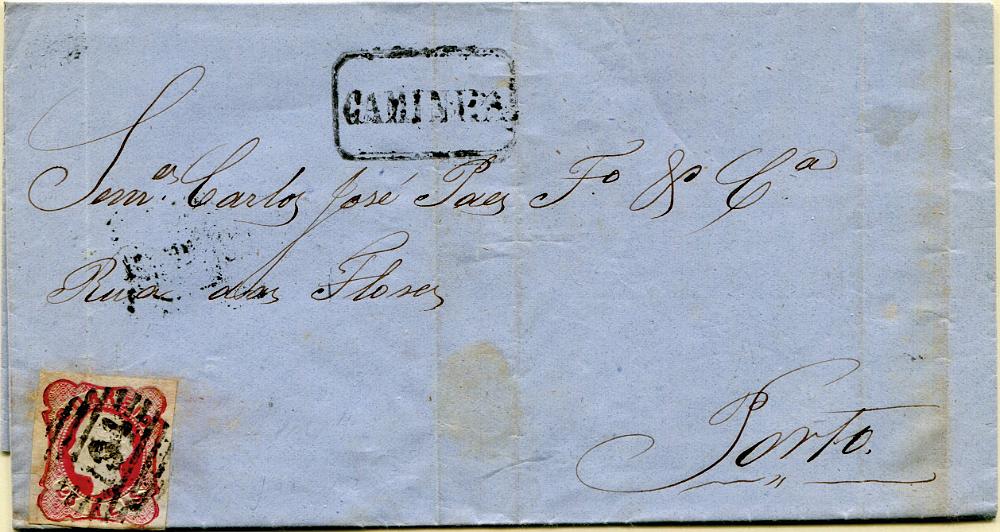 CAMINHA
Senr.es Carlos José Paes F.o & C.a
Rua das Flores
Porto.